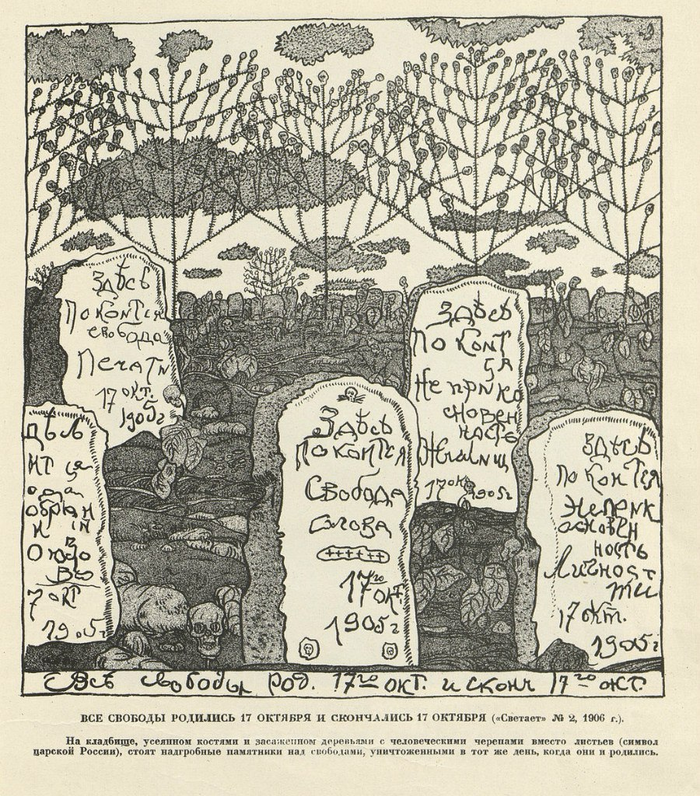 Здѣсь
Покоится
свобода
Печати
17 окт.
1905 г
Здѣсь
Покоит
ся
Неприко
сновен
ность
Жилищ
17 окт 1905 г
Здѣсь
Покоится
Свобода
Слова
17го
окт.
1905 г
Здѣсь
Покоится
Неприк
основен
ность
Личност
ти
17 окт.
1905 г
7 окт
1905 г
Всѣ свободы род. 17го окт. и сконч 17го окт.
ВСЕ СВОБОДЫ РОДИЛИСЬ 17 ОКТЯБРЯ И СКОНЧАЛИСЬ 17 ОКТЯБРЯ («Светает» № 2, 1906 г.).
На кладбище, усеянном костями и засаженном деревьями с человеческими черепами вместо листьев (символ
царской России), стоят надгробные памятники над свободами, уничтоженными в тот же день, когда они и родились.